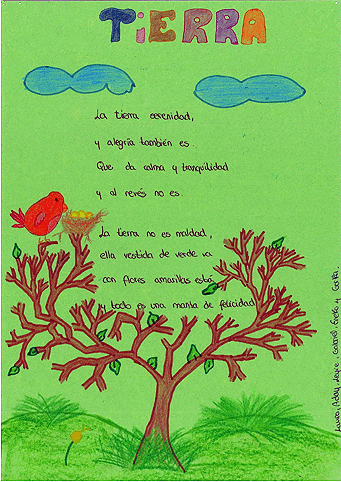 TIERRA
La tierra serenidad,
y alegría también es.
Que da calma y tranquilidad
y al revés no es.
La tierra no es maldad,
ella vestida de verde va
con flores amarillas está
y todo es una manta de felicidad
Laura,